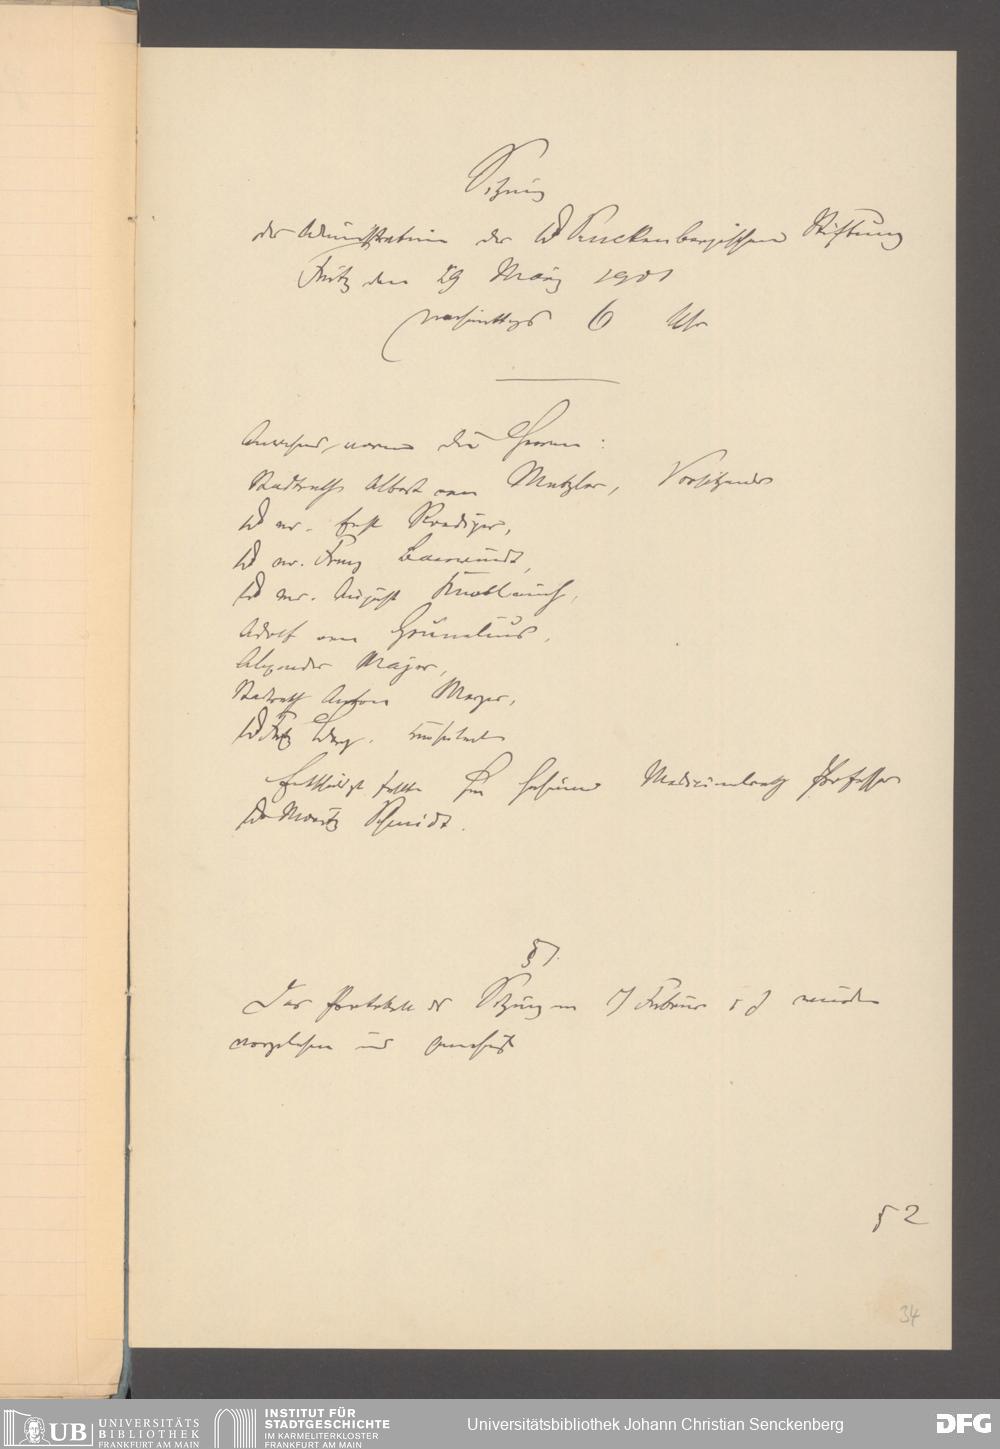 Sitzung
der Administration der Dr Senckenbergischen Stiftung
Freitag den 29 März 1901
nachmittags 6 Uhr
Anwesend waren die Herren:
Stadtrath Albert von Metzler, Vorsitzender
Dr med. Ernst Roediger,
Dr med. Franz Baerwindt,
Dr med. August Knoblauch,
Adolf von Grunelius,
Alexander Majer,
Stadtrath Anton Meyer,
Dr Fritz Berg. Konsulent
Entschuldigt fehlte Herr Geheime Medicinalrath Professor
Dr Moritz Schmidt.
§ 1.
Das Protokoll der Sitzung vom Februar d J wurde
vorgelesen und genehmigt
§ 2
34
UB UNIVERSITÄTS
BIBLIOTHEK
FRANKFURT AM MAIN
INSTITUT FÜR
STADTGESCHICHTE
IM KARMELITERKLOSTER
FRANKFURT AM MAIN
Universitätsbibliothek Johann Christian Senckenberg
DFG